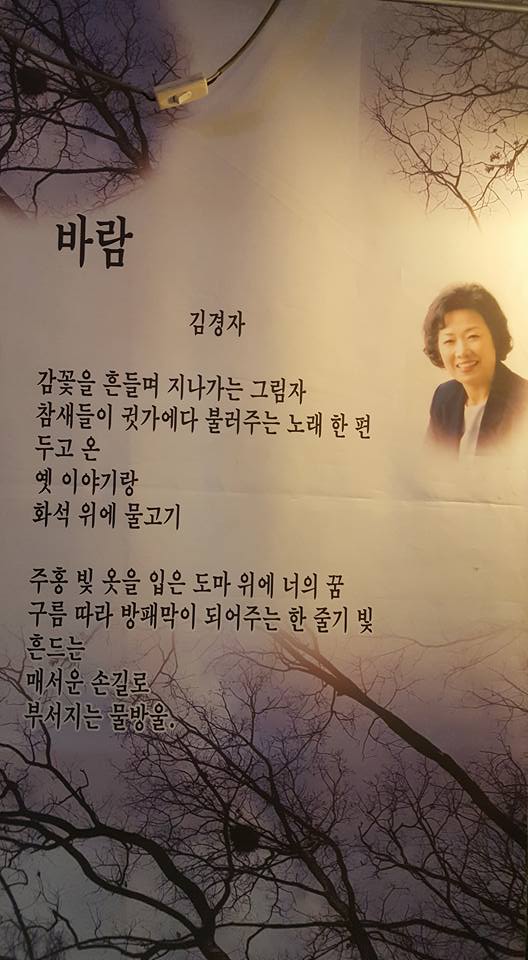 바람
김경자
감꽃을 흔들며 지나가는 그림자
참새들이 귓가에다 불러주는 노래 한 편
두고 온
옛 이야기랑
화석 위에 물고기
주홍 빛 옷을 입은 도마 위에 너의 꿈
구름 따라 방패막이 되어주는 한 줄기 빛
흔드는
매서운 손길로
부서지는 물방울.